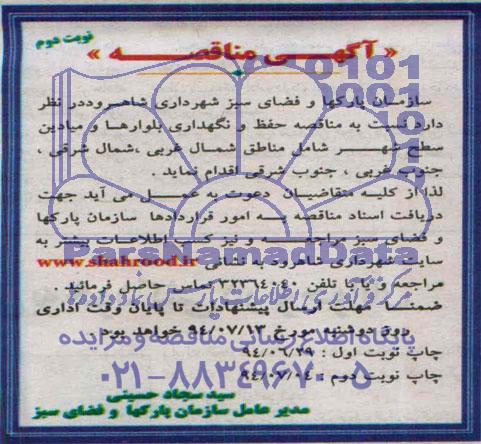 نوبت دوم
« آگهـی مناقصـه »
سازمـان پارکها و فضای سبز شهرداری شاهرود در نظر
دارد نسبت به مناقصه حفظ و نگهداری بلوارها و میادین
سطح شهـر شامل مناطق شمـال غربی ،شمال شرقی ،
جنوب غربی ، جنوب شرقی اقدام نماید .
لذا از کلیـه متقاضیـان دعوت به عمـل می آید جهت
دریافت اسناد مناقصه بـه امور قراردادها سازمان پارکها
و فضای سبز مراجعـه و نیز کسب اطلاعـات بیشتر به
سایت شهرداری شاهرود به نشانی www.shahrood.ir
مراجعه و یا با تلفن ۳۲۳۶۴۰۴۰ تماس حاصل فرمائید .
ضمنـا مهلت ارسال پیشنهادات تا پایان وقت اداری
روز دوشنبه مورخ ۹۴/۰۷/۱۳ خواهد بود .
چاپ نوبت اول : ۹۴/۰۶/۲۹
چاپ نوبت دوم : ۹۴/۰۷/۰۴
سید سجاد حسینی
مدیر عامل سازمان پارکها و فضای سبز
ParsNamadData
مرکز فرآوری اطلاعات پارس نماد داده ها
پایگاه اطلاع رسانی مناقصه و مزایده
۰۲۱-۸۸۳۴۹۶۷۰-۵